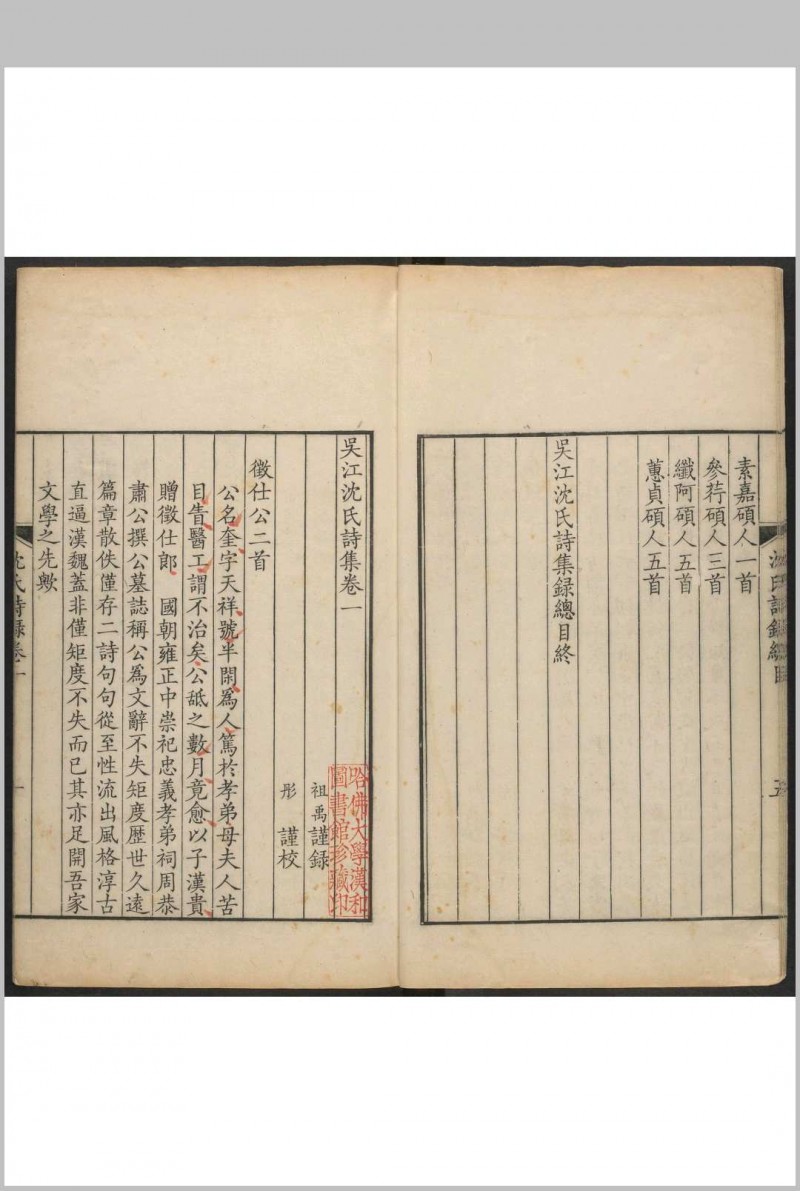 素嘉碩人一首
參荇碩人三首
纖阿碩人五首
蕙貞碩人五首
吳江沈氏詩集録總目終
吳江沈氏詩集卷一
祖禹謹録
彤謹校
徵仕公二首
公名奎字天祥號半閑爲人篤於孝弟母夫人苦
目眚醫工謂不治矣公䑛之數月竟愈以子漢貴
贈徵仕郎 國朝雍正中崇祀忠義孝弟祠周恭
肅公撰公墓誌稱公爲文辭不失矩度歷世久遠
篇章散佚僅存二詩句句從至性流出風格淳古
直逼漢魏蓋非僅矩度不失而已其亦足開吾家
文學之先歟
哈佛大學漢和
圖書館珍藏印